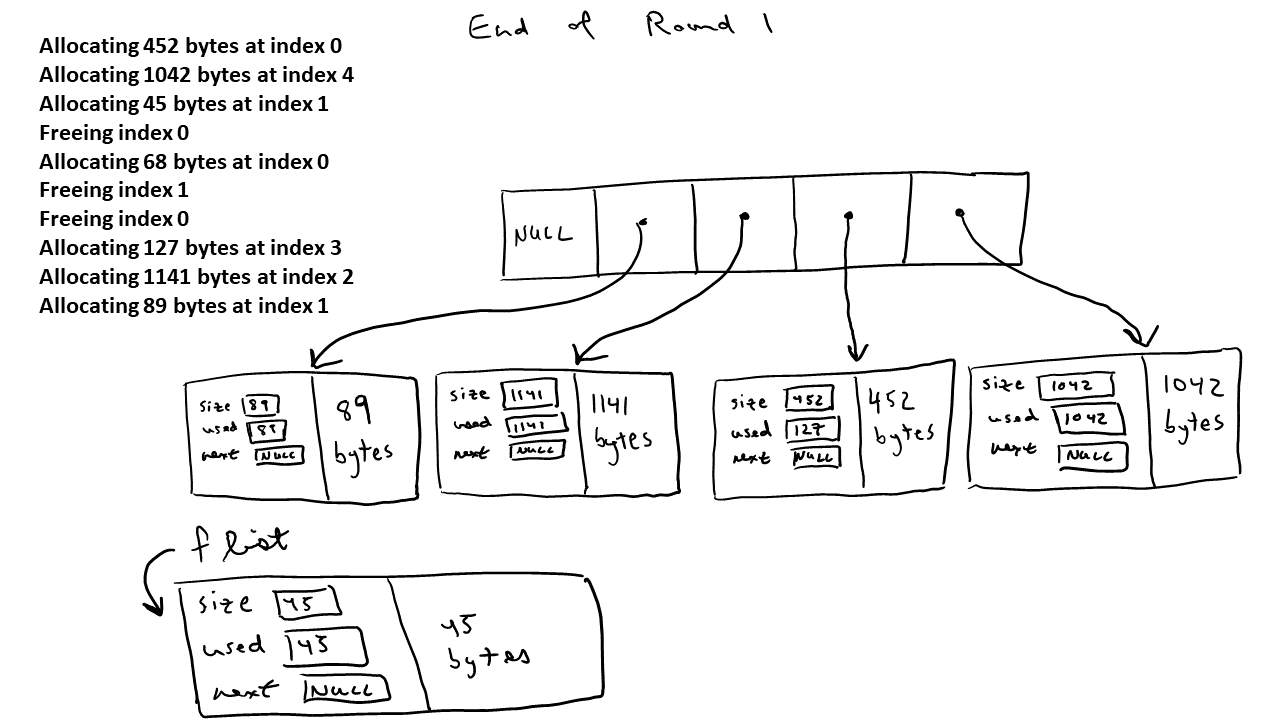 End of Round 1
Allocating 452 bytes at index 0
Allocating 1042 bytes at index 4
Allocating 45 bytes at index 1
Freeing index 0
Allocating 68 bytes at index 0
Freeing index 1
Freeing index 0
Allocating 127 bytes at index 3
Allocating 1141 bytes at index 2
Allocating 89 bytes at index 1
NULL
size 89
used 89
next NULL
89
bytes
size 1141
used 1141
next NULL
1141
bytes
size 452
used 127
next NULL
452
bytes
size 1042
used 1042
next NULL
1042
bytes
f list
size 45
used 45
next NULL
45
bytes